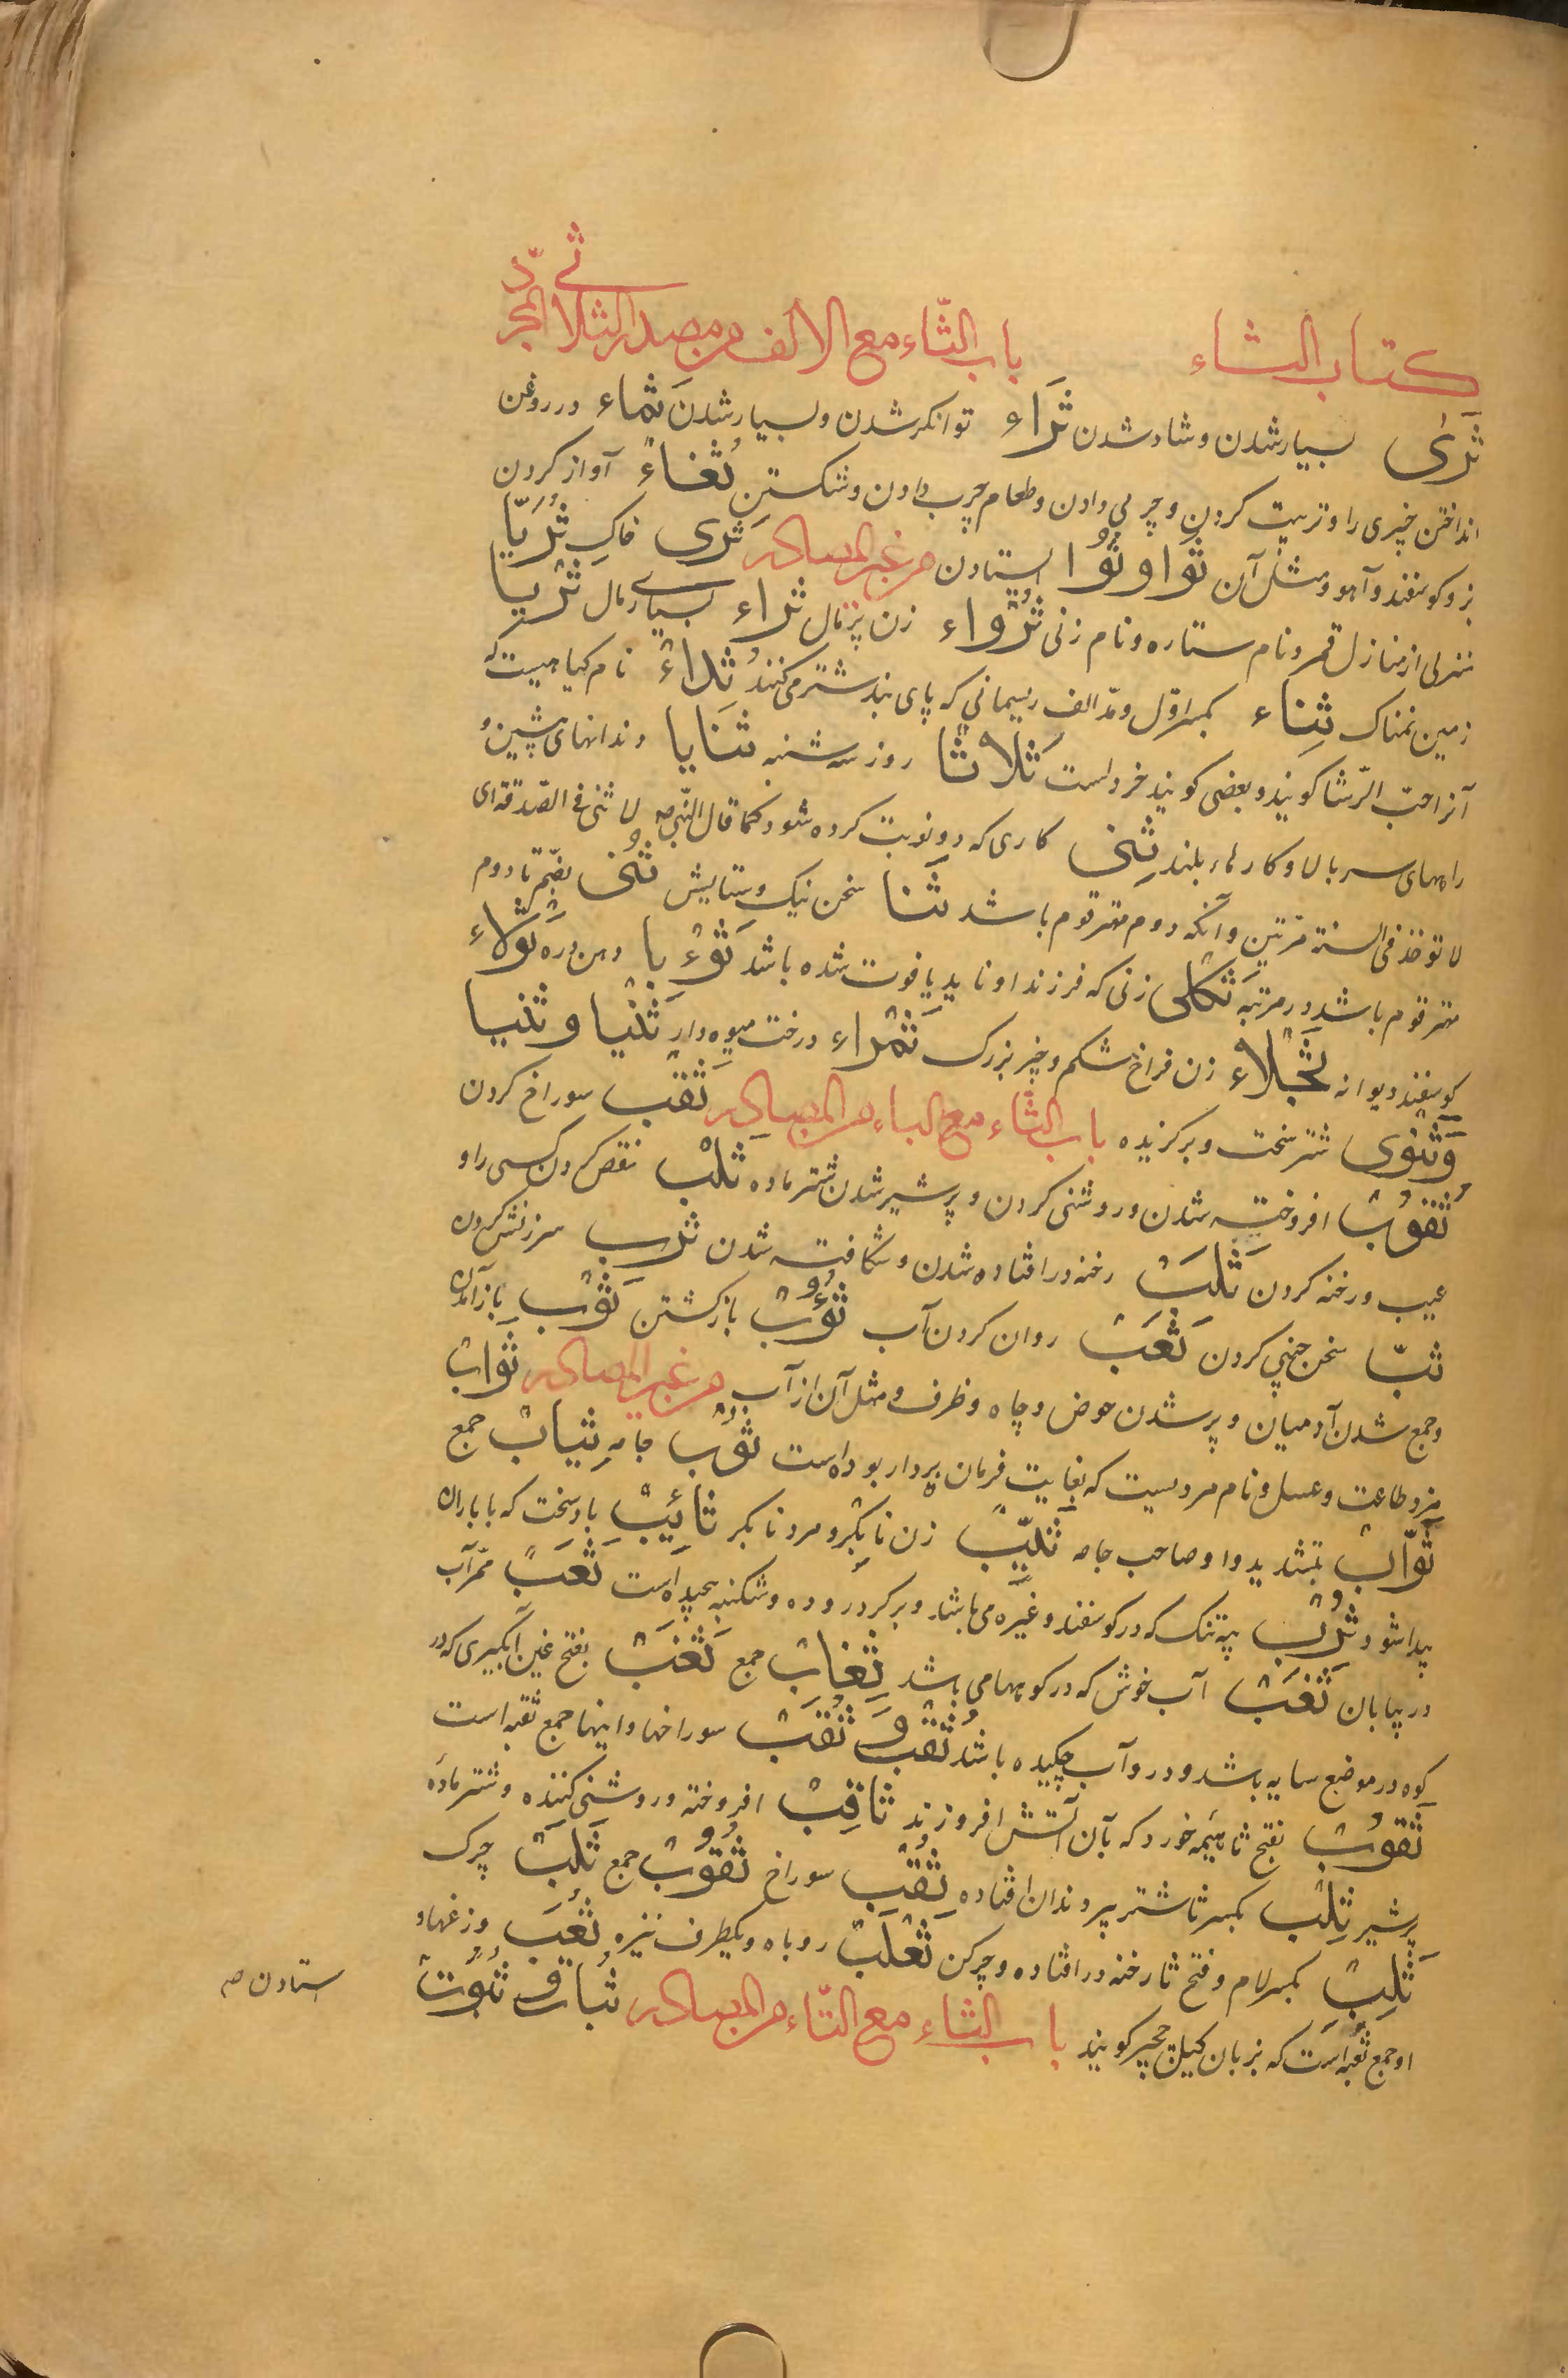 کتاب الثاء باب الثّاء مع الالف من مصدر الثلاثی المجرّد
ثَرَی بسیار شدن و شاد شدن ثَرَاء توانکر شدن و بسیار شدن ثَماء در روغن
انداختن چیزی را و تربیت کردن و چربی دادن و طعام چرب دادن و شکستن ثُغاءٌ آواز کردن
بز و کوسفند و آهو و مثل آن ثَوا و ثُوُا ایستادن من غیر المصادر ثَرَی خاک ثُرَیّا
منزلی از منازل قمر و نام ستاره و نام زنی ثَرْواء زن پرمال ثراء بسیاری مال ثَرْیا
زمین نمناک ثِناء بکسر اوّل و مدّ الف ریسمانی که پای بند شتر می کنند ثُداءٌ نام کیاهیست که
آنرا حبّ الرّشا کویند و بعضی کویند خردلست ثَلاثا روز سه شنبه ثَنایا دندانهای پیشین و
راههای سربالا و کارهاء بلند ثِنی کاری که دو نوبت کرده شود کما قال النّبی صه لا ثنی فی الصّدقة ای
لا توخذ فی السنة مرّتین و آنکه دوم مهتر قوم باشد ثَنا سخن نیک و ستایش ثُنی بضمّ ثا دوم
مهتر قوم باشد در مرتبه ثَکلی زنی که فرزند او ناپدید یا فوت شده باشد ثَوْءبا دهن دره ثَوْلاء
کوسفند دیوانه ثَجْلاء زن فراخ شکم و چیز بزرک ثَمْراء درخت میوه دار ثَنْیا و ثنیا
وَثَنْوی شتر سخت و برکزیده باب الثّاء مع الباء من المصادر ثَقْب سوراخ کردن
ثُقُوبْ افروخته شدن و روشنی کردن و پرشیر شدن شتر ماده ثَلْب نقص کردن کسی را و
عیب و رخنه کردن ثَلَبْ رخنه در افتاده شدن و شکافته شدن ثَرْب سرزنش کردن
ثبّا سخن چینی کردن ثَعَبْ روان کردن آب ثُؤُبْ بازکشتن ثَوْب بازآمدن
و جمع شدن آدمیان و پر شدن حوض و چاه و ظرف و مثل آن از آب من غیر المصادر ثَوابْ
مزد طاعت و عسل و نام مردیست که بغایت فرمان بردار بوده است ثَوْب جامه ثِیابْ جمع
ثَوّابْ بتشدید واو صاحب جامه ثَیّبْ زن نابکر و مرد نابکر ثائِبْ باد سخت که با باران
پیدا شود ثَرْب پیه تنک که در کوسفند و غیره می باشد و برکرد روده و شکنبه پیچیده است ثَعَبٌ ممرّ آب
در بیابان ثَغَبْ آب خوش که در کوهها می باشد ثِغابْ جمع ثَغَبْ بفتح غین آبکیری که در
کوه در موضع سایه باشد و در و آب چکیده باشد ثُقْب و ثُقَبْ سوراخها و اینها جمع ثقبه است
ثَقوُبْ بفتح ثا هیمه خورد که بآن آتش افروزند ثاقِبْ افروخته و روشنی کننده و شتر ماده
پرشیر ثِلْب بکسر ثا شتر پیر دندان افتاده ثُقْب سوراخ ثُقُوبْ جمع ثَلَبْ چرک
ثَلِبْ بکسر لام و فتح ثا رخنه در افتاده و چرکن ثَعْلَبْ روباه و یکطرف نیزه ثُعَب وزغها و
او جمع ثعبه است که بزبان کیلان چچیر کویند باب الثاء مع التّاء من المصادر ثَبات و ثُبُوتْ
استادن صه